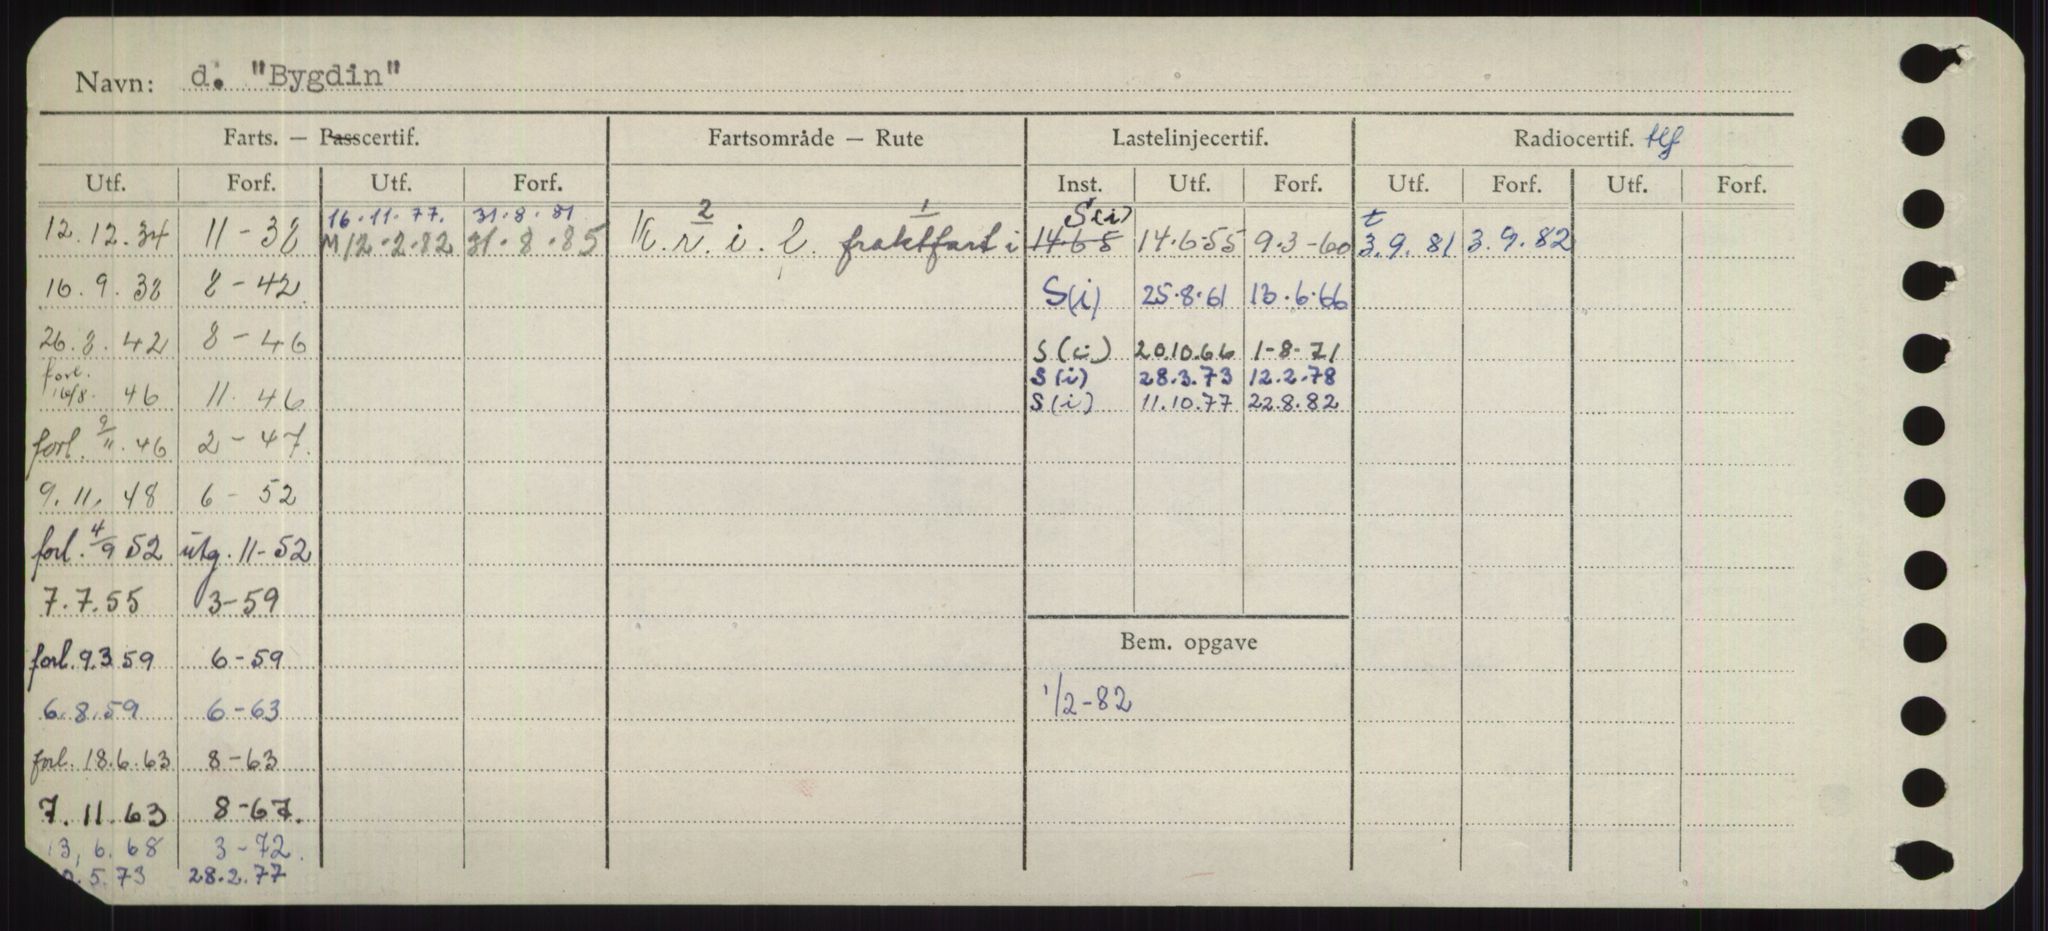 Navn: d. "Bygdin"
Farts. — Passcertif. Fartsområde — Rute Lastelinjecertif. Radiocertif. tlf
Utf. Forf. Utf. Forf. Inst. Utf. Forf. Utf. Forf. Utf. Forf.
16.11.77. 31.8.81 2 1 S(i) t
12.12.34 11-38 M12.2.82 31.8.85 K. r. i. l. fraktfart i 14.6.55 9.3-60 3.9.81 3.9.82
16.9.38 8-42 S(i) 25.8.61 13.6.66
26.8.42 8-46 S(i) 20.10.66 1-8-71
forl. 16/8. 46 11. 46 S(i) 28.3.73 12.2.78
S(i) 11.10.77 22.8.82
forl. 9/11. 46 2-47.
9.11.48 6-52
forl. 4/9 52 utg. 11-52
7.7.55 3-59
Bem. opgave
forl. 9.3.59 6-59
6.8.59 6-63 1/2-82
forl. 18.6.63 8-63
7.11.63 8-67.
13,6.68 3-72.
.5.73 28.2.77